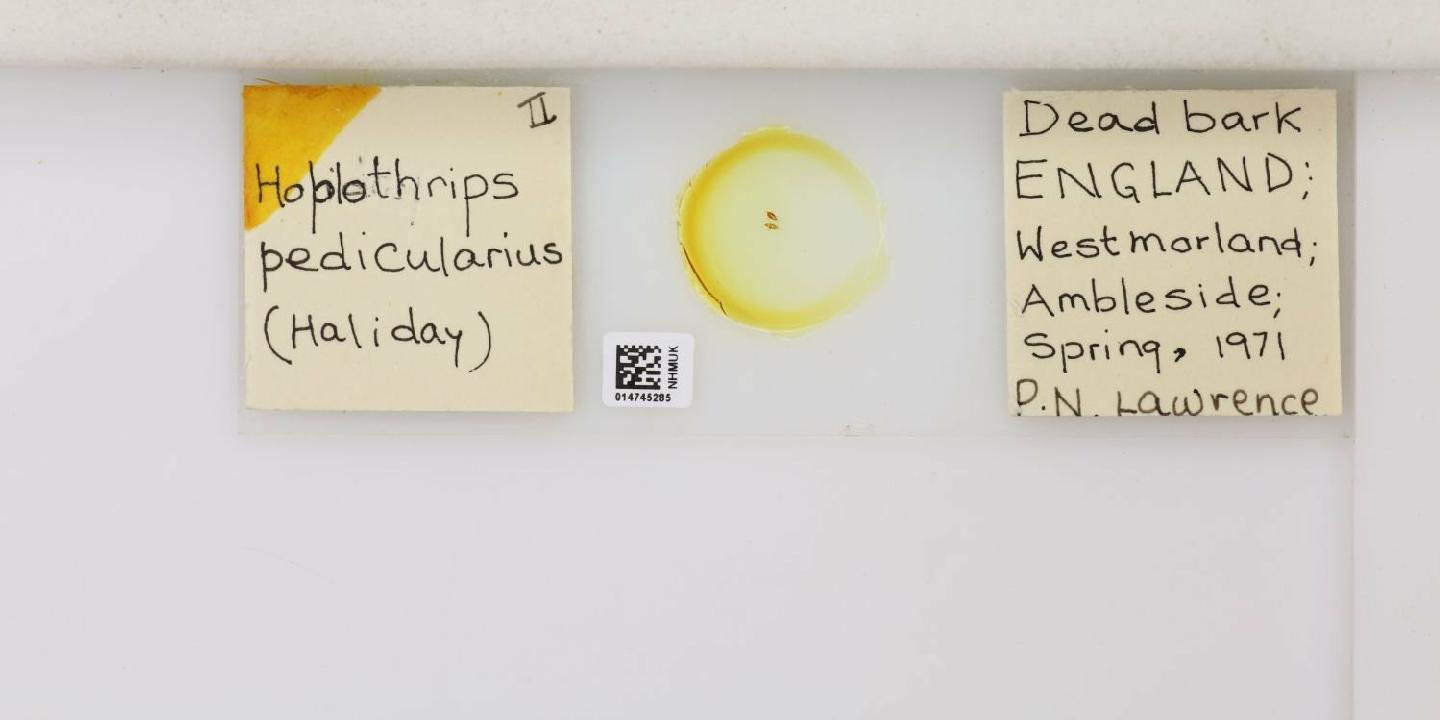 II
Hoplothrips
pedicularius
(Haliday)
NHMUK
014745285
Dead bark
ENGLAND;
Westmorland;
Ambleside;
Spring, 1971
P.N. Lawrence